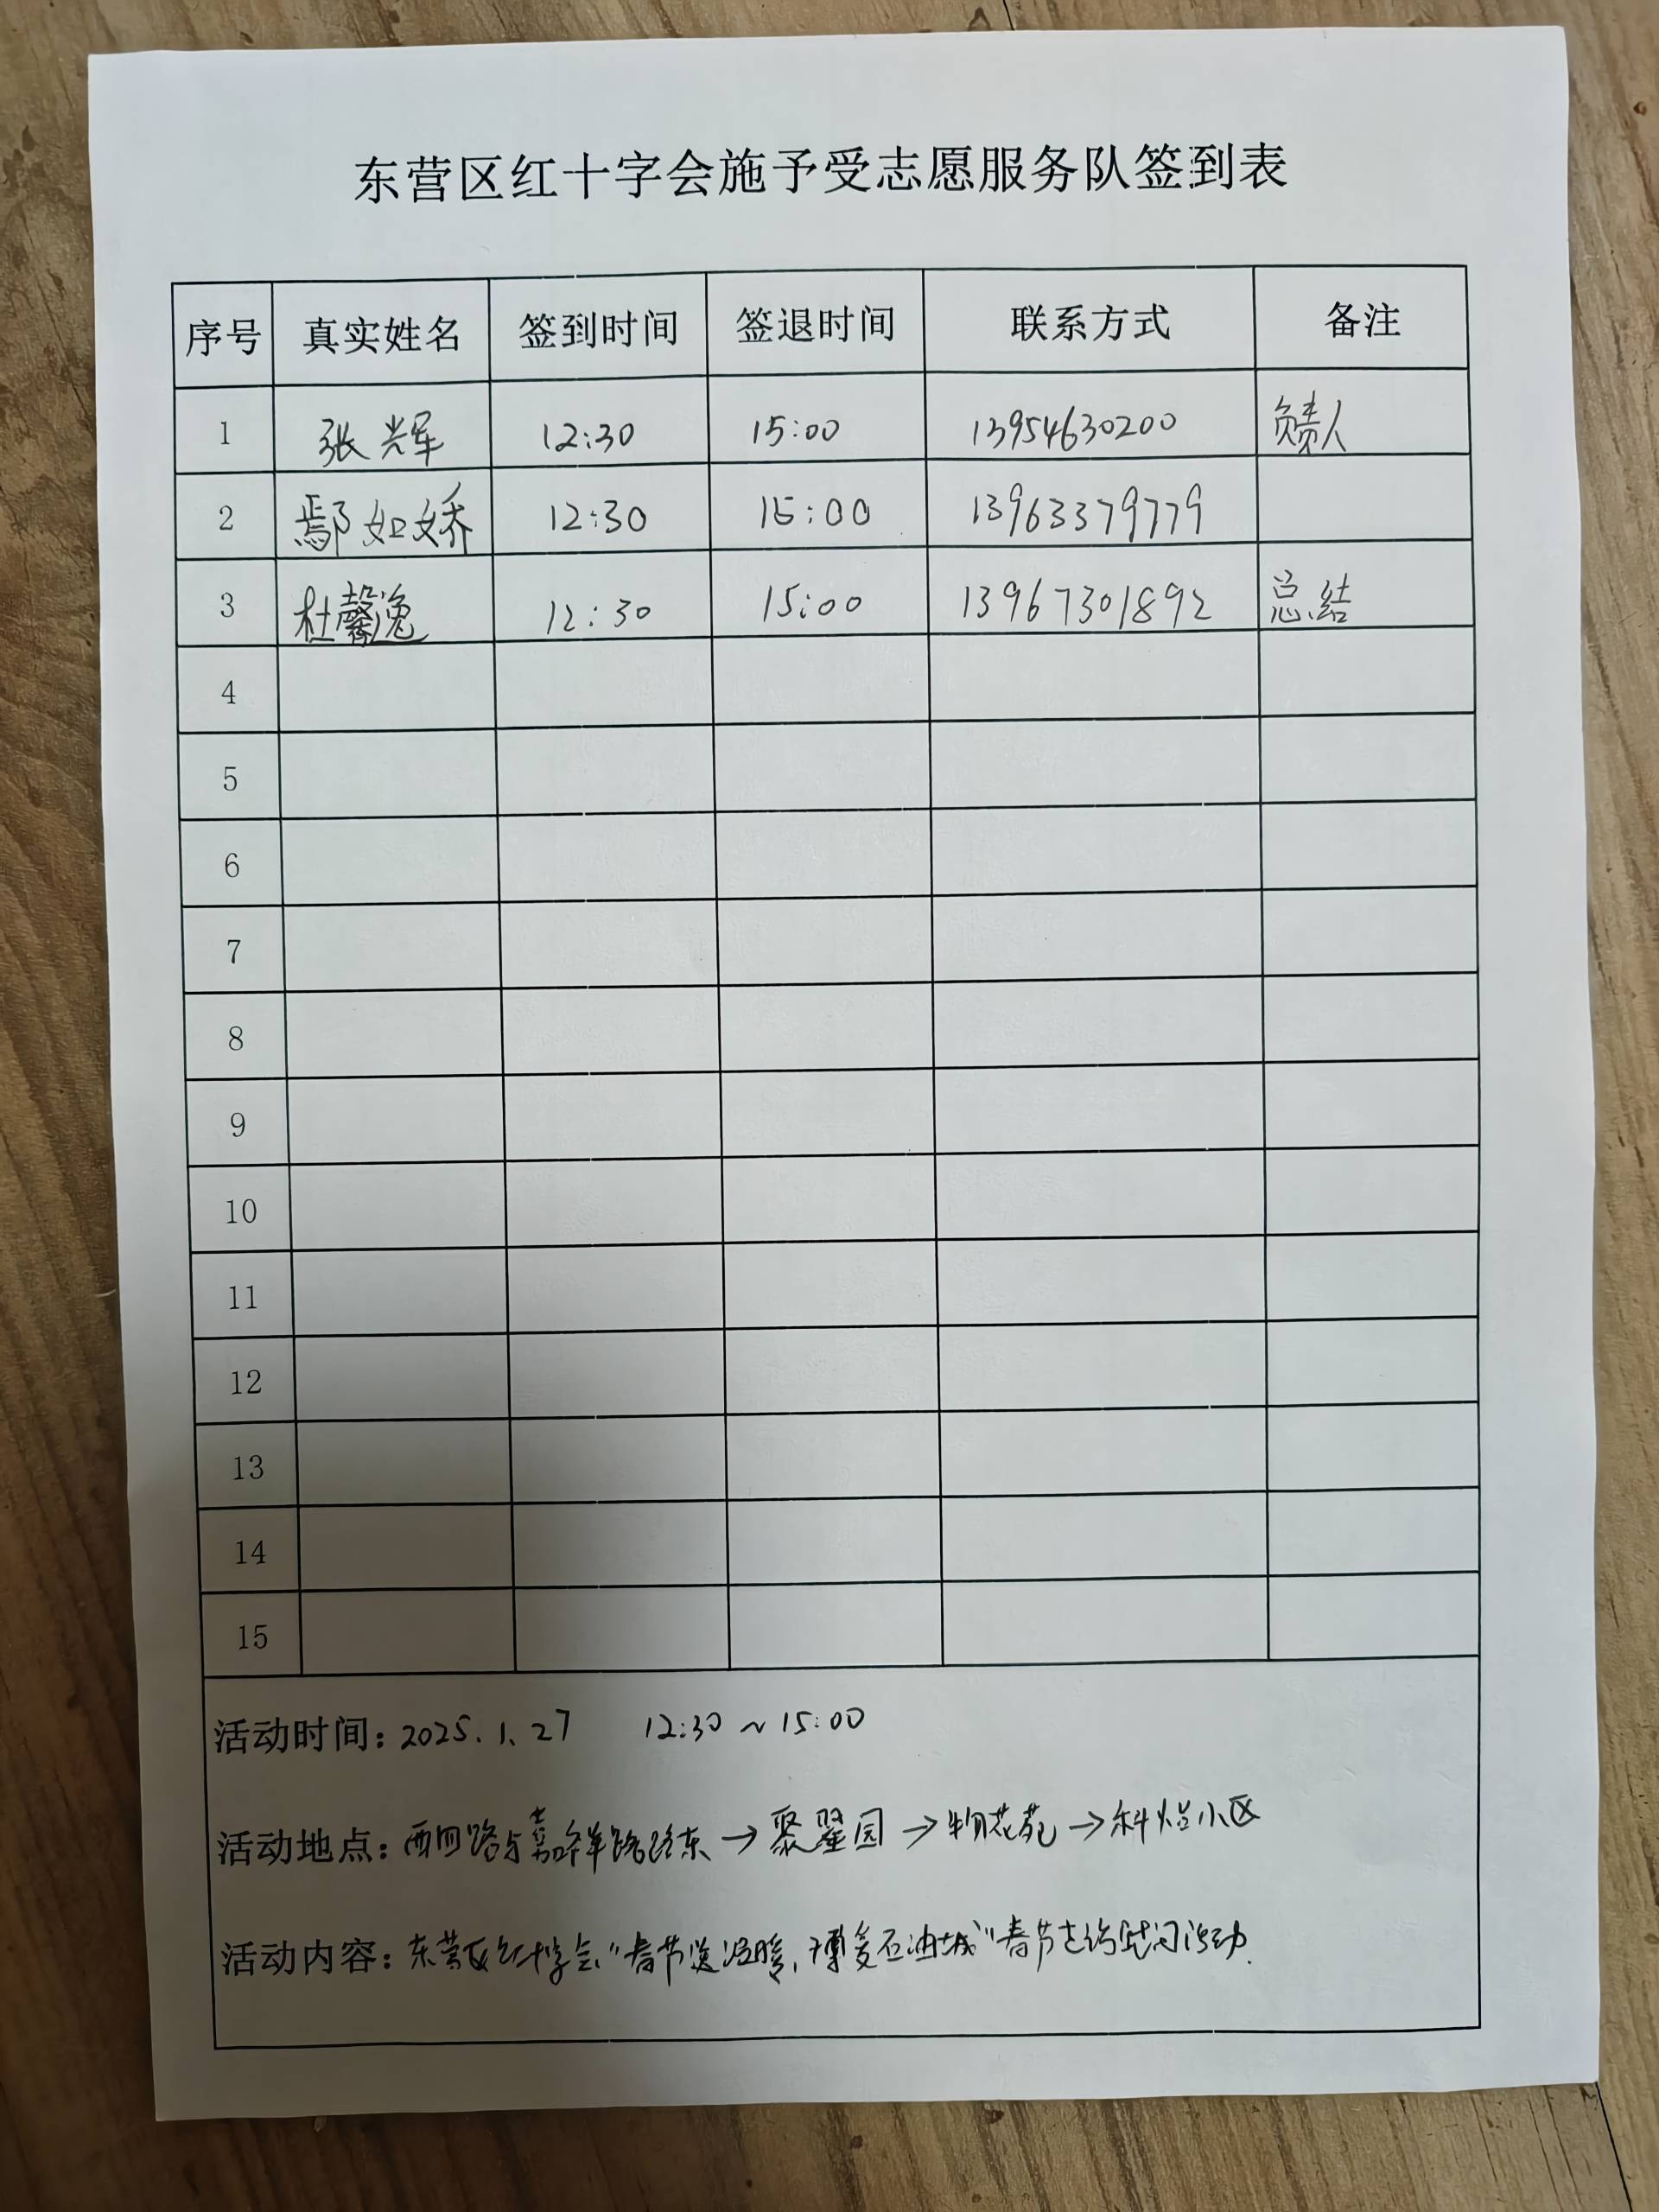 东营区红十字会施予受志愿服务队签到表
序号 真实姓名 签到时间 签退时间 联系方式 备注
1 张辉 12:30 15:00 13954630200 负责人
2 鄢如娇 12:30 15:00 13963379779
3 杜馨逸 12:30 15:00 13967301892 总结
4
5
6
7
8
9
10
11
12
13
14
15
活动时间: 2025.1.27 12:30 ~ 15:00
活动地点: 西四路与嘉祥路路东→聚翠园→物花苑→科苑小区
活动内容: 东营区红十字会“春节送温暖,博爱石油城”春节走访慰问活动.